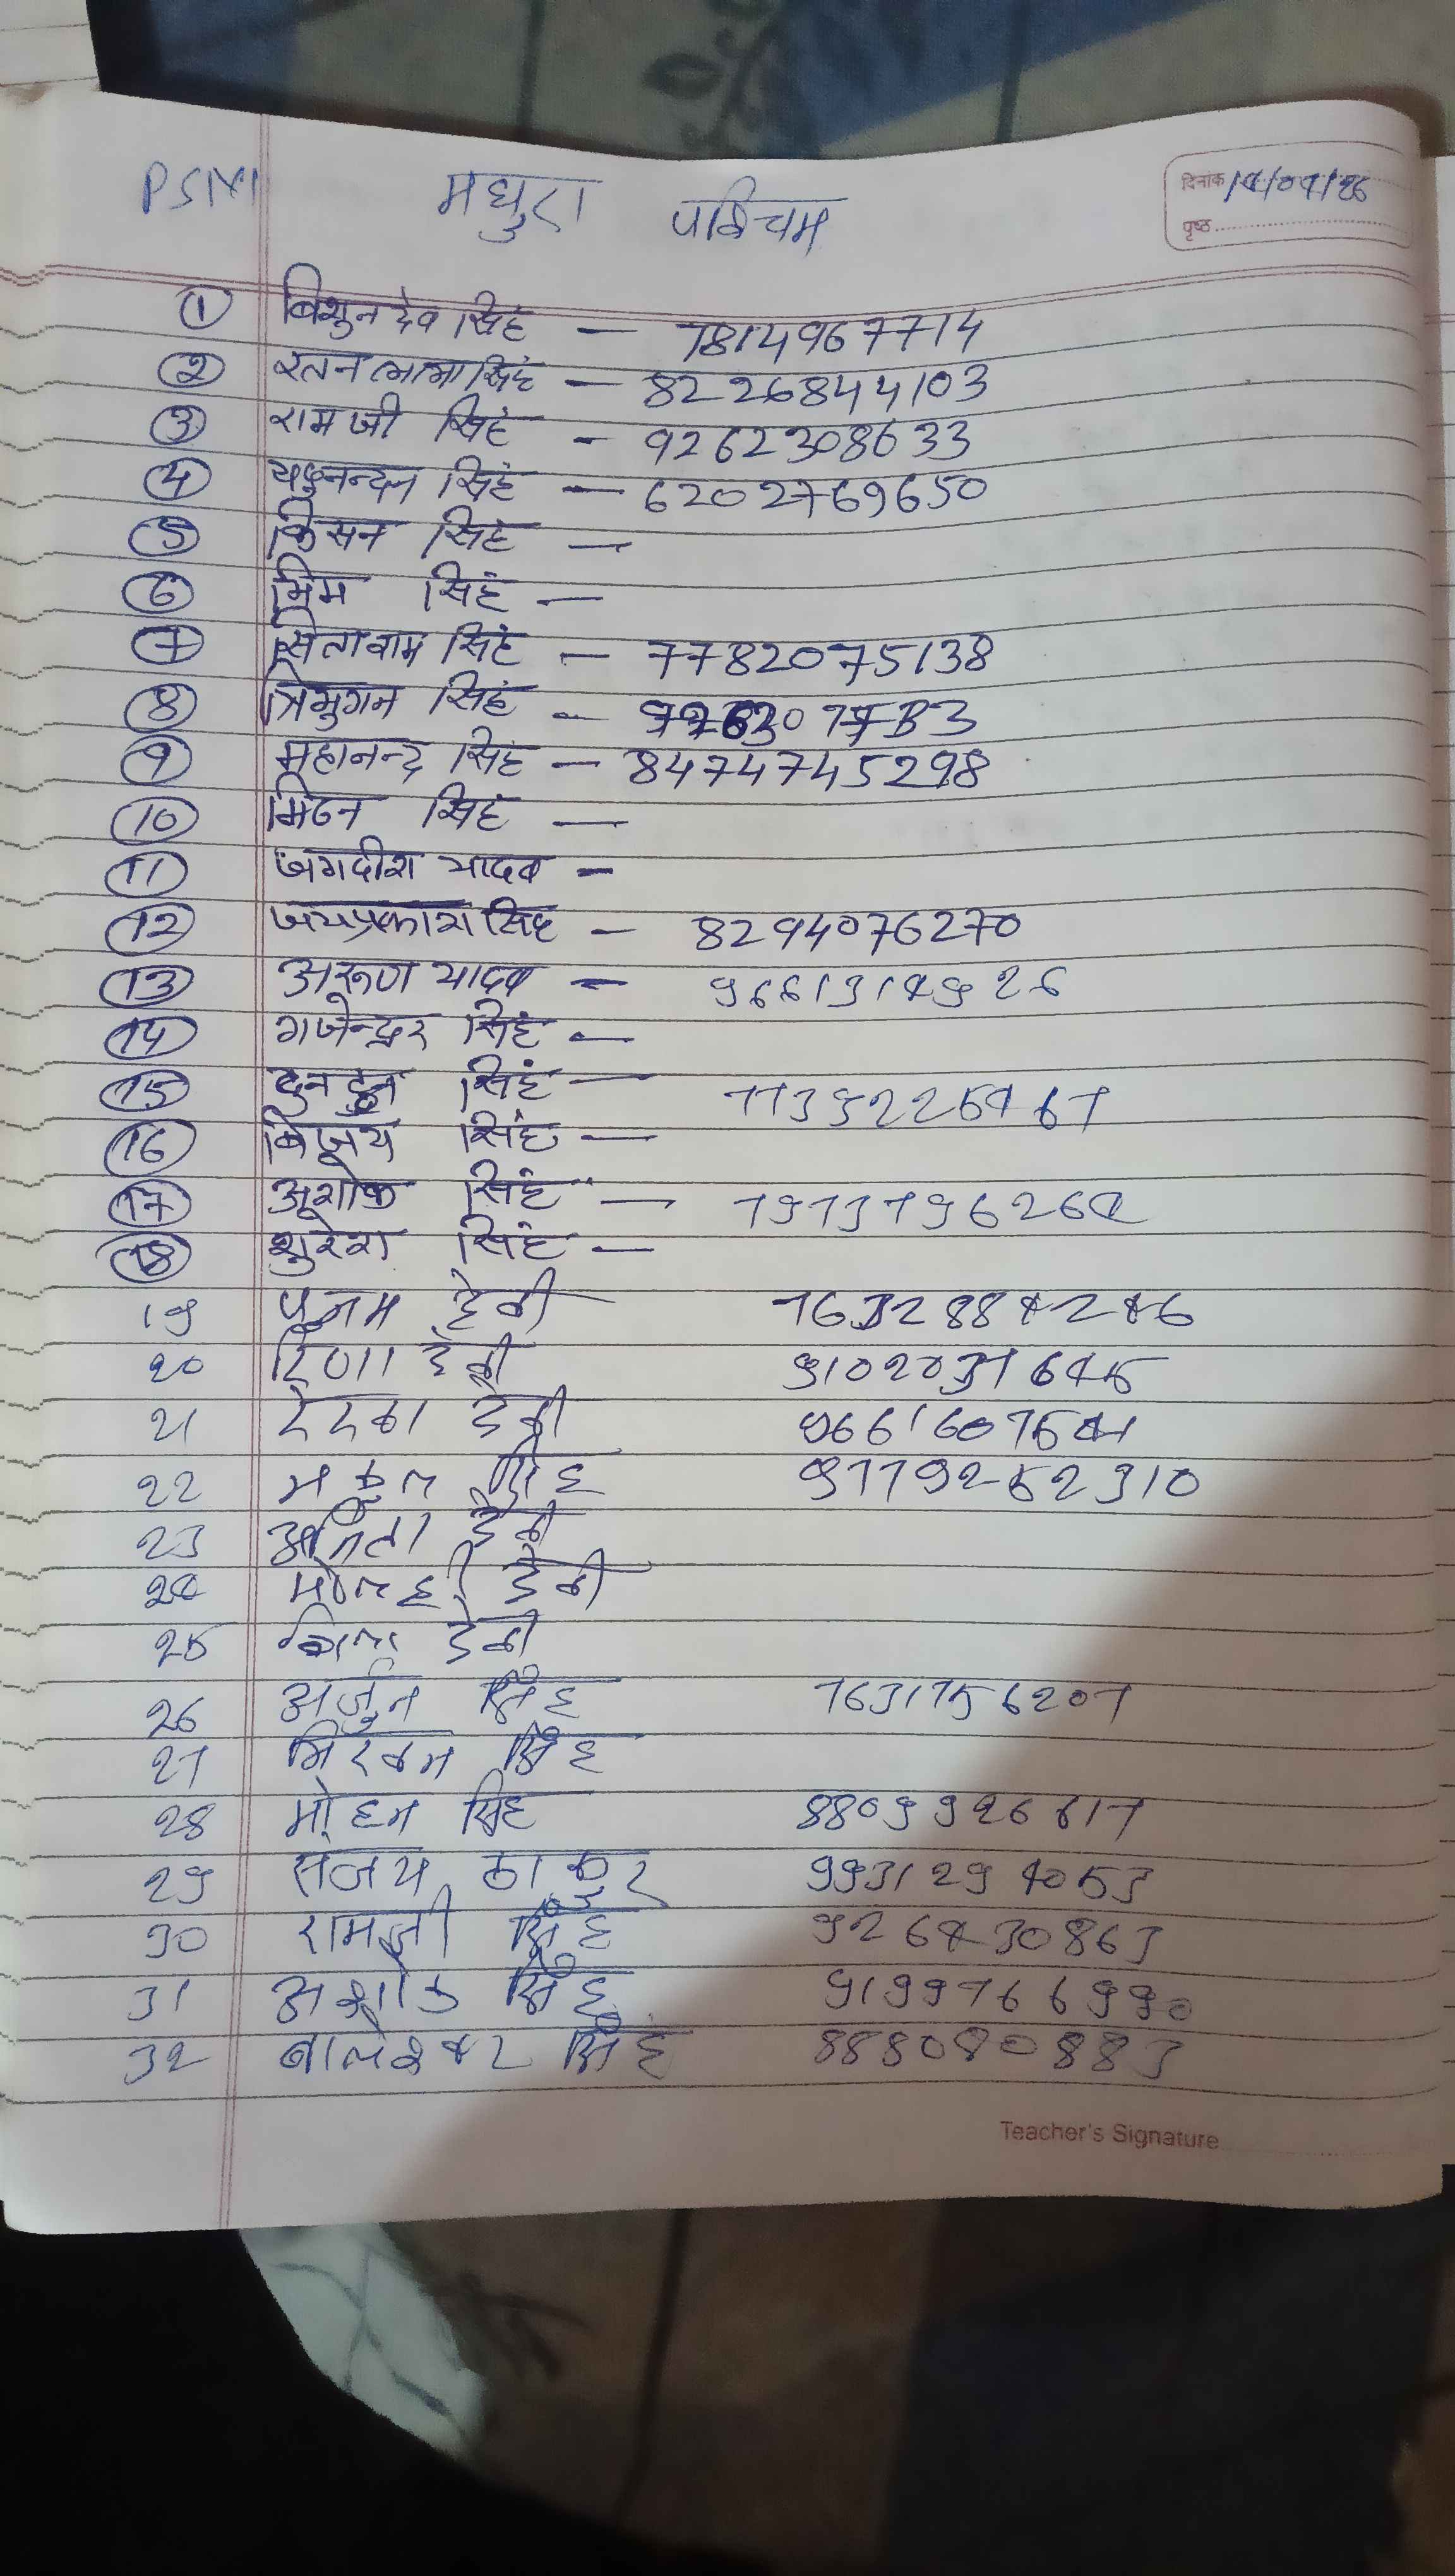 मधुरा पश्चिम
दिनांक 14/04/26
पृष्ठ
1 बिशुनदेव सिहं — 7814967714
2 रतन लामा सिहं — 8226844103
3 रामजी सिहं - 9262308633
4 यदुनन्दन सिहं — 6202769650
5 किसन सिहं —
6 भिम सिहं —
7 सितावाम सिहं — 7782075138
8 त्रिभुगन सिहं —
9 महानन्द सिहं — 8474745298
10 मिठन सिहं —
11 जगदीश यादव —
12 जयप्रकाश सिहं — 8294076270
13 अरूण यादव — 9661314926
14 गजेन्द्रर सिहं —
15 टुनटुन सिहं — 7739225467
16 बिजय सिहं —
17 अशोक सिहं — 7973796264
18 शुरेश सिहं —
19 पुनम देवी
20 रिणा देवी
21 देवी 9661607564
22 सिंह 9779252310
23 अनिता देवी
24 देवी
25 देवी
26 अर्जुन सिंह 7631756207
27 सिंह
28 मोहन सिंह 8809926617
29 संजय ठाकुर 9931294053
30 रामजी सिंह 926430863
31 अशोक सिंह 9199766990
32 बालेश्वर सिंह 888080883
Teacher's Signature